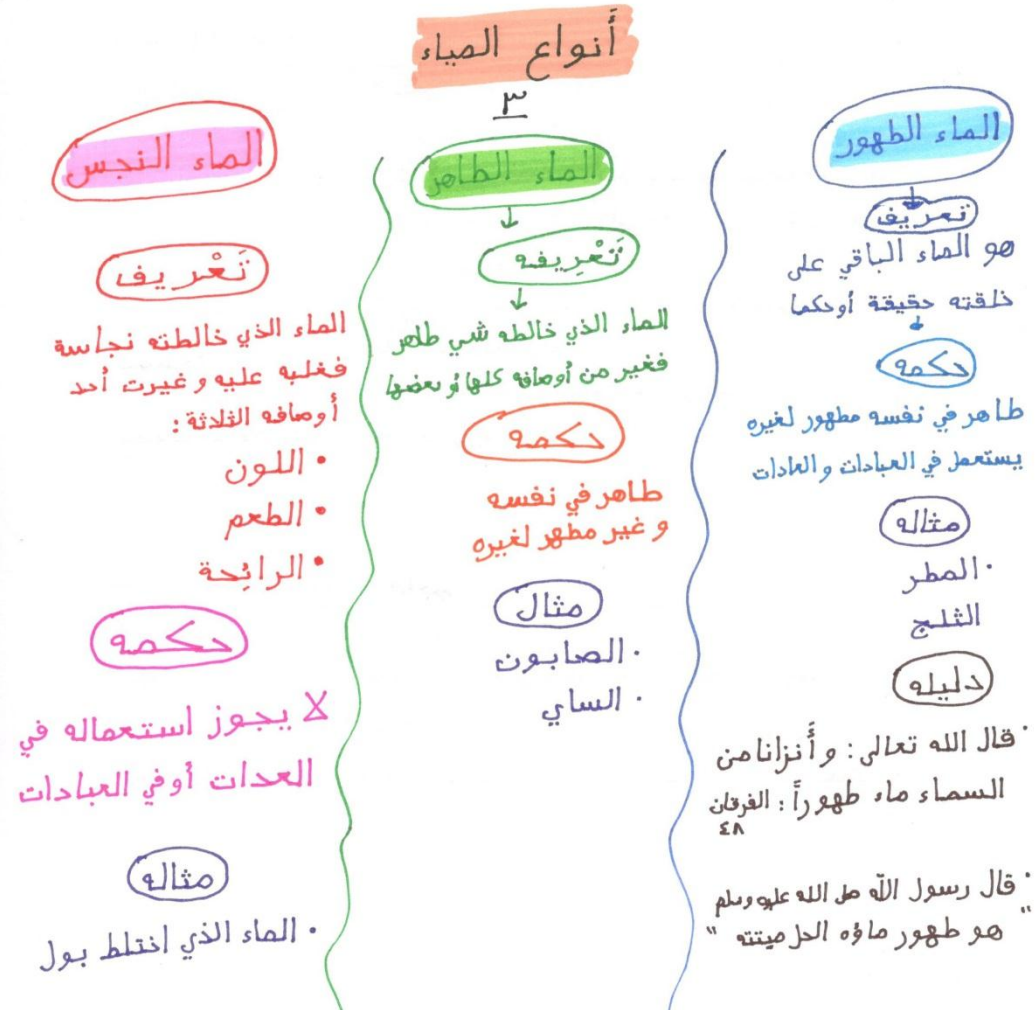 أنواع المياه
٣
الماء الطهور
تعريف
هو الماء الباقي على
خلقته حقيقة أوحكما
حكمه
طاهر في نفسه مطهور لغيره
يستعمل في العبادات والعادات
مثاله
· المطر
الثلج
دليله
· قال الله تعالى: وأنزانا من
السماء ماء طهوراً: الفرقان
٤٨
· قال رسول الله صل الله عليه وسلم
" هو طهور ماؤه الحل ميتته "
الماء الطاهر
تَعْرِيفه
الماء الذي خالطه شي طاهر
فغير من أوصافه كلها أو بعضها
حكمه
طاهر في نفسه
و غير مطهر لغيره
مثال
· الصابون
· الساي
الماء النجس
تَعْريف
الماء الذي خالطته نجاسة
فغلبه عليه و غيرت أحد
أوصافه الثلاثة:
• اللون
• الطعم
• الرائِحة
حكمه
لا يجوز استعماله في
العدات أوفي العبادات
مثاله
• الماء الذي اختلط بول